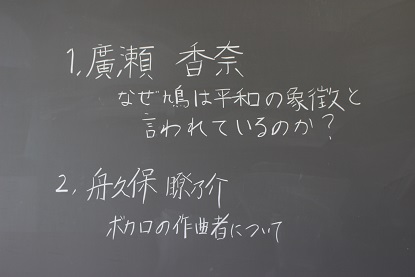 1. 廣瀬 香奈
なぜ鳩は平和の象徴と
言われているのか?
2. 舟久保 瞭介
ボカロの作曲者について